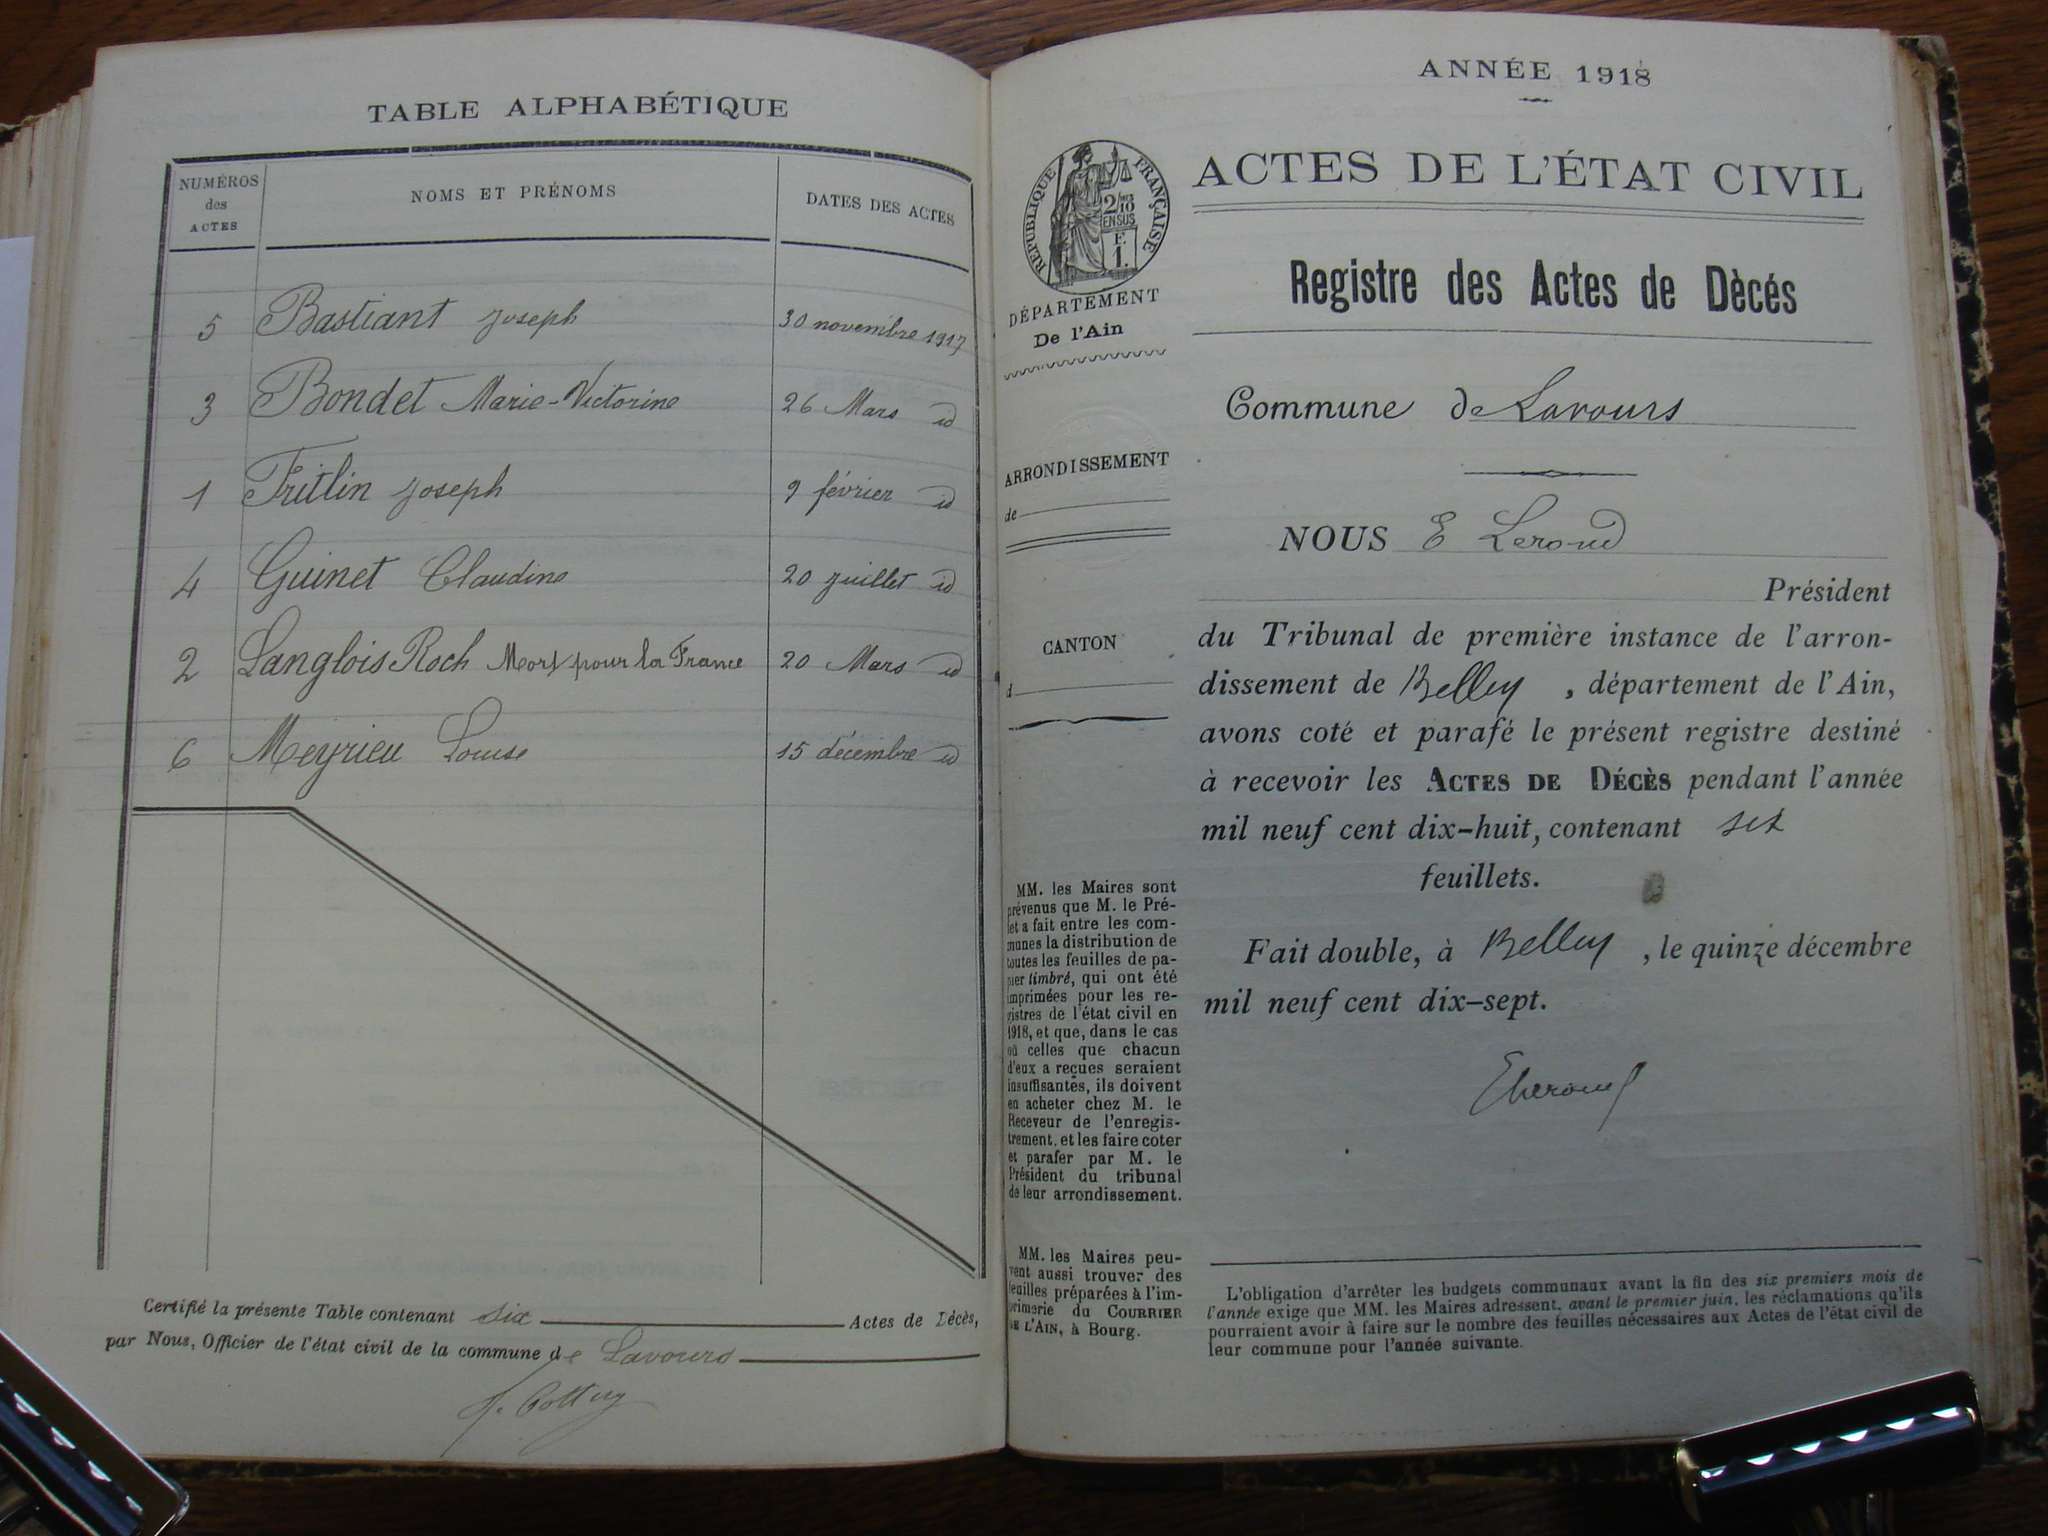 TABLE ALPHABÉTIQUE
NUMÉROS des ACTES
NOMS ET PRÉNOMS
DATES DES ACTES
5 Bastiant Joseph 30 novembre 1917
3 Bondet Marie-Victorine 26 Mars id
1 Fritlin Joseph 9 février id
4 Guinet Claudine 20 juillet id
2 Langlois Roch Mort pour la France 20 Mars id
6 Meyrieu Louise 15 décembre id
Certifié la présente Table contenant six Actes de Décès,
par Nous, Officier de l'état civil de la commune de Lavours
ANNÉE 1918
RÉPUBLIQUE FRANÇAISE
2/10
EN SUS
F.
1.
DÉPARTEMENT
De l'Ain
ARRONDISSEMENT
de
CANTON
d
MM. les Maires sont
prévenus que M. le Pré-
fet a fait entre les com-
munes la distribution de
toutes les feuilles de pa-
pier timbré, qui ont été
imprimées pour les re-
gistres de l'état civil en
1918, et que, dans le cas
où celles que chacun
d'eux a reçues seraient
insuffisantes, ils doivent
en acheter chez M. le
Receveur de l'enregis-
trement, et les faire coter
et parafer par M. le
Président du tribunal
de leur arrondissement.
MM. les Maires peu-
vent aussi trouver des
feuilles préparées à l'im-
primerie du COURRIER
DE L'AIN, à Bourg.
ACTES DE L'ÉTAT CIVIL
Registre des Actes de Dècés
Commune de Lavours
NOUS E Lerond
Président
du Tribunal de première instance de l'arron-
dissement de Belley, département de l'Ain,
avons coté et parafé le présent registre destiné
à recevoir les ACTES DE DÉCÈS pendant l'année
mil neuf cent dix-huit, contenant six
feuillets.
Fait double, à Belley, le quinze décembre
mil neuf cent dix-sept.
ELerond
L'obligation d'arrêter les budgets communaux avant la fin des six premiers mois de
l'année exige que MM. les Maires adressent, avant le premier juin, les réclamations qu'ils
pourraient avoir à faire sur le nombre des feuilles nécessaires aux Actes de l'état civil de
leur commune pour l'année suivante.